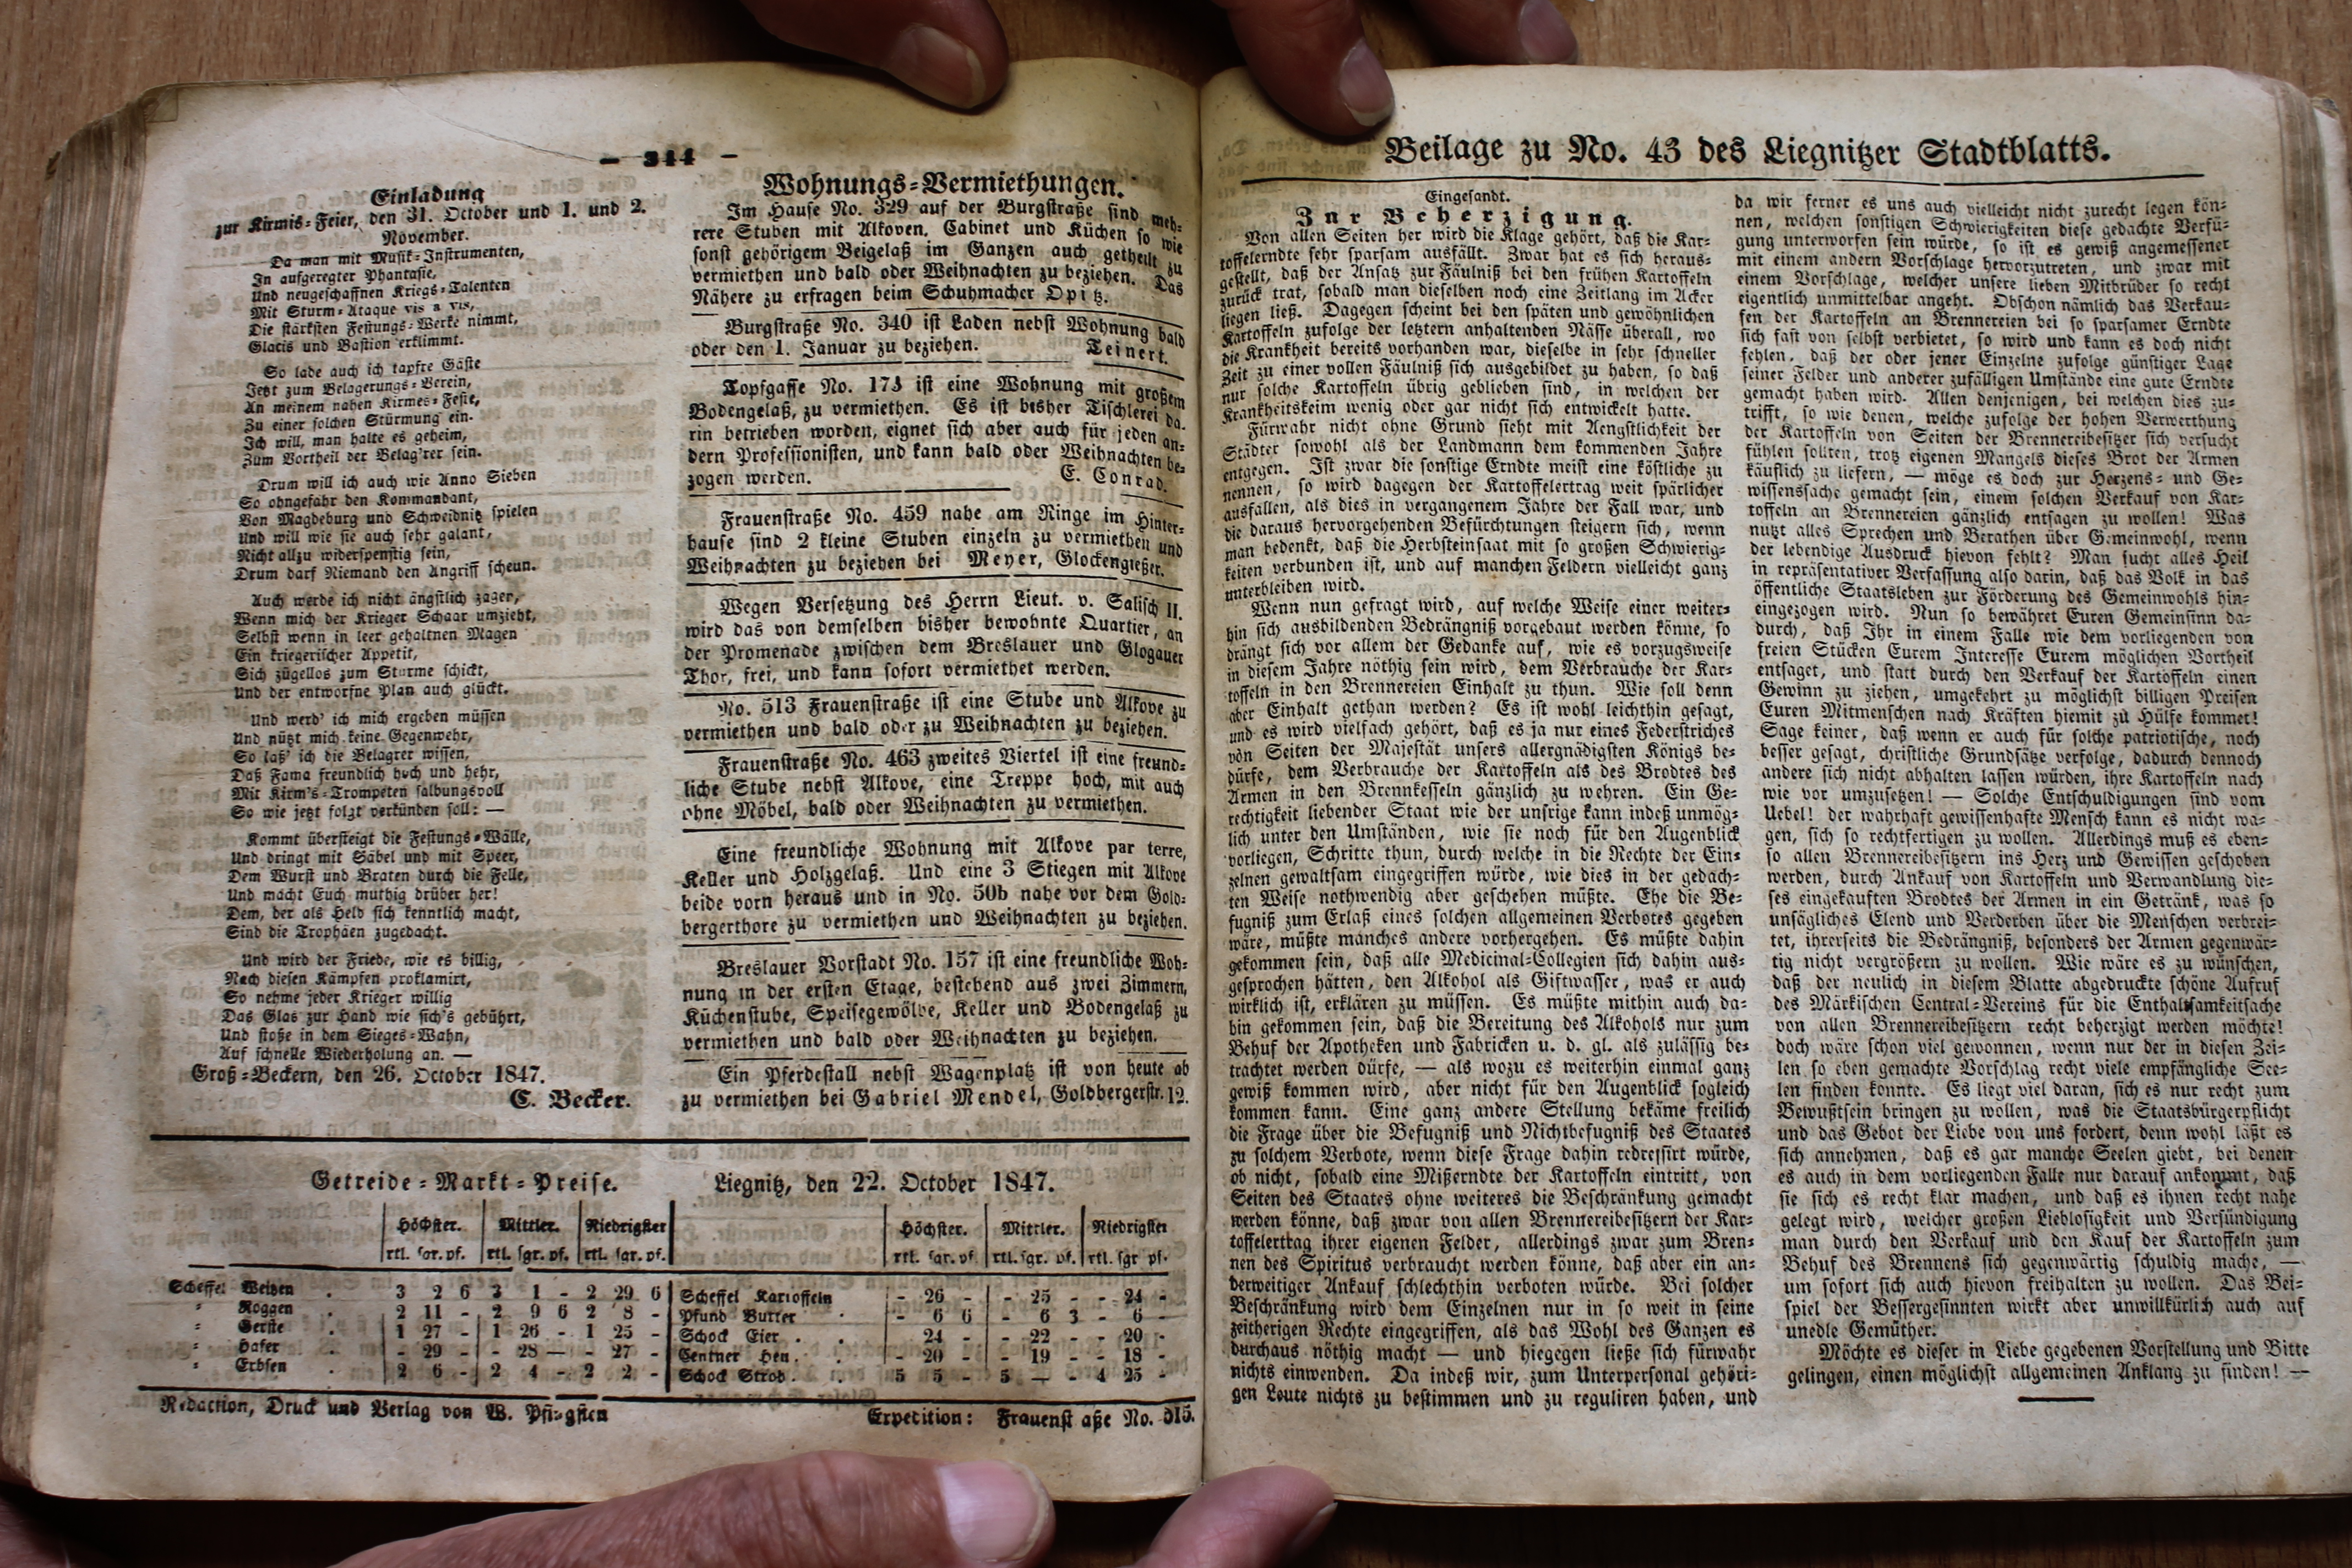 — 344 —
Einladung
zur Kirmis-Feier, den 31. October und 1. und 2.
November.
Da man mit Musik-Instrumenten,
In aufgeregter Phantasie,
Und neugeschaffnen Kriegs-Talenten
Mit Sturm-Ataque vis a vis,
Die stärksten Festungs-Werke nimmt,
Glacis und Bastion erklimmt.
So lade auch ich tapfre Gäste
Jetzt zum Belagerungs-Verein,
An meinem nahen Kirmes-Feste,
Zu einer solchen Stürmung ein.
Ich will, man halte es geheim,
Zum Vortheil der Belag'rer sein.
Drum will ich auch wie Anno Sieben
So ohngefähr den Kommandant,
Von Magdeburg und Schweidnitz spielen
Und will wie sie auch sehr galant,
Nicht allzu widerspenstig sein,
Drum darf Niemand den Angriff scheun.
Auch werde ich nicht ängstlich zager,
Wenn mich der Krieger Schaar umzieht,
Selbst wenn in leer gehaltnen Magen
Ein kriegerischer Appetit,
Sich zügellos zum Sturme schickt,
Und der entworfne Plan auch glückt.
Und werd' ich mich ergeben müssen
Und nützt mich keine Gegenwehr,
So laß' ich die Belagrer wissen,
Daß Fama freundlich hoch und hehr,
Mit Kirm's-Trompeten salbungsvoll
So wie jetzt folgt verkünden soll: —
Kommt übersteigt die Festungs-Wälle,
Und dringt mit Säbel und mit Speer,
Dem Wurst und Braten durch die Felle,
Und macht Euch muthig drüber her!
Dem, der als Held sich kenntlich macht,
Sind die Trophäen zugedacht.
Und wird der Friede, wie es billig,
Nach diesen Kämpfen proklamirt,
So nehme jeder Krieger willig
Das Glas zur Hand wie sich's gebührt,
Und stoße in dem Sieges-Wahn,
Auf schnelle Wiederholung an. —
Groß-Beckern, den 26. October 1847.
C. Becker.
Wohnungs-Vermiethungen.
Im Hause No. 329 auf der Burgstraße sind meh-
rere Stuben mit Alkoven, Cabinet und Küchen so wie
sonst gehörigem Beigelaß im Ganzen auch getheilt zu
vermiethen und bald oder Weihnachten zu beziehen. Das
Nähere zu erfragen beim Schuhmacher Opitz.
Burgstraße No. 340 ist Laden nebst Wohnung bald
oder den 1. Januar zu beziehen. Teinert.
Topfgasse No. 173 ist eine Wohnung mit großem
Bodengelaß, zu vermiethen. Es ist bisher Tischlerei da-
rin betrieben worden, eignet sich aber auch für jeden an-
dern Professionisten, und kann bald oder Weihnachten be-
zogen werden. E. Conrad.
Frauenstraße No. 459 nahe am Ringe im Hinter-
hause sind 2 kleine Stuben einzeln zu vermiethen und
Weihnachten zu beziehen bei Meyer, Glockengießer.
Wegen Versetzung des Herrn Lieut. v. Salisch II.
wird das von demselben bisher bewohnte Quartier, an
der Promenade zwischen dem Breslauer und Glogauer
Thor, frei, und kann sofort vermiethet werden.
No. 513 Frauenstraße ist eine Stube und Alkove zu
vermiethen und bald oder zu Weihnachten zu beziehen.
Frauenstraße No. 463 zweites Viertel ist eine freund-
liche Stube nebst Alkove, eine Treppe hoch, mit auch
ohne Möbel, bald oder Weihnachten zu vermiethen.
Eine freundliche Wohnung mit Alkove par terre,
Keller und Holzgelaß. Und eine 3 Stiegen mit Alkove
beide vorn heraus und in No. 50b nahe vor dem Gold-
bergerthore zu vermiethen und Weihnachten zu beziehen.
Breslauer Vorstadt No. 157 ist eine freundliche Woh-
nung in der ersten Etage, bestehend aus zwei Zimmern,
Küchenstube, Speisegewölbe, Keller und Bodengelaß zu
vermiethen und bald oder Weihnachten zu beziehen.
Ein Pferdestall nebst Wagenplatz ist von heute ab
zu vermiethen bei Gabriel Mendel, Goldbergerstr. 12.
Getreide-Markt-Preise. Liegnitz, den 22. October 1847.
Höchster. Mittler. Niedrigster Höchster. Mittler. Niedrigster
rtl. sgr. pf. rtl. sgr. pf. rtl. sgr. pf. rtl. sgr. pf rtl. sgr. pf. rtl. sgr pf.
Scheffel Weitzen . 3 2 6 3 1 - 2 29 6 Scheffel Kartoffeln - 26 - - 25 - - 24 -
" Roggen . 2 11 - 2 9 6 2 8 - Pfund Butter . - 6 6 - 6 3 - 6 -
" Gerste . 1 27 - 1 26 - 1 25 - Schock Eier . . 24 - - 22 - - 20 -
" Hafer . - 29 - - 28 — - 27 - Centner Heu . . - 20 - - 19 - - 18 -
" Erbsen . 2 6 - 2 4 - 2 2 - Schock Stroh . . 5 5 - 5 — - 4 25 -
Redaction, Druck und Verlag von W. Pfingsten Expedition: Frauenstraße No. 515.
Beilage zu No. 43 des Liegnitzer Stadtblatts.
Eingesandt.
Zur Beherzigung.
Von allen Seiten her wird die Klage gehört, daß die Kar-
toffelerndte sehr sparsam ausfällt. Zwar hat es sich heraus-
gestellt, daß der Ansatz zur Fäulniß bei den frühen Kartoffeln
zurück trat, sobald man dieselben noch eine Zeitlang im Acker
liegen ließ. Dagegen scheint bei den späten und gewöhnlichen
Kartoffeln zufolge der letztern anhaltenden Nässe überall, wo
die Krankheit bereits vorhanden war, dieselbe in sehr schneller
Zeit zu einer vollen Fäulniß sich ausgebildet zu haben, so daß
nur solche Kartoffeln übrig geblieben sind, in welchen der
Krankheitskeim wenig oder gar nicht sich entwickelt hatte.
Fürwahr nicht ohne Grund sieht mit Aengstlichkeit der
Städter sowohl als der Landmann dem kommenden Jahre
entgegen. Ist zwar die sonstige Erndte meist eine köstliche zu
nennen, so wird dagegen der Kartoffelertrag weit spärlicher
ausfallen, als dies in vergangenem Jahre der Fall war, und
die daraus hervorgehenden Befürchtungen steigern sich, wenn
man bedenkt, daß die Herbsteinsaat mit so großen Schwierig-
keiten verbunden ist, und auf manchen Feldern vielleicht ganz
unterbleiben wird.
Wenn nun gefragt wird, auf welche Weise einer weiter-
hin sich ausbildenden Bedrängniß vorgebaut werden könne, so
drängt sich vor allem der Gedanke auf, wie es vorzugsweise
in diesem Jahre nöthig sein wird, dem Verbrauche der Kar-
toffeln in den Brennereien Einhalt zu thun. Wie soll denn
aber Einhalt gethan werden? Es ist wohl leichthin gesagt,
und es wird vielfach gehört, daß es ja nur eines Federstriches
von Seiten der Majestät unsers allergnädigsten Königs be-
dürfe, dem Verbrauche der Kartoffeln als des Brodtes des
Armen in den Brennkesseln gänzlich zu wehren. Ein Ge-
rechtigkeit liebender Staat wie der unsrige kann indeß unmög-
lich unter den Umständen, wie sie noch für den Augenblick
vorliegen, Schritte thun, durch welche in die Rechte der Ein-
zelnen gewaltsam eingegriffen würde, wie dies in der gedach-
ten Weise nothwendig aber geschehen müßte. Ehe die Be-
fugniß zum Erlaß eines solchen allgemeinen Verbotes gegeben
wäre, müßte manches andere vorhergehen. Es müßte dahin
gekommen sein, daß alle Medicinal-Collegien sich dahin aus-
gesprochen hätten, den Alkohol als Giftwasser, was er auch
wirklich ist, erklären zu müssen. Es müßte mithin auch da-
hin gekommen sein, daß die Bereitung des Alkohols nur zum
Behuf der Apotheken und Fabricken u. d. gl. als zulässig be-
trachtet werden dürfe, — als wozu es weiterhin einmal ganz
gewiß kommen wird, aber nicht für den Augenblick sogleich
kommen kann. Eine ganz andere Stellung bekäme freilich
die Frage über die Befugniß und Nichtbefugniß des Staates
zu solchem Verbote, wenn diese Frage dahin redressirt würde,
ob nicht, sobald eine Mißerndte der Kartoffeln eintritt, von
Seiten des Staates ohne weiteres die Beschränkung gemacht
werden könne, daß zwar von allen Brennereibesitzern der Kar-
toffelertrag ihrer eigenen Felder, allerdings zwar zum Bren-
nen des Spiritus verbraucht werden könne, daß aber ein an-
derweitiger Ankauf schlechthin verboten würde. Bei solcher
Beschränkung wird dem Einzelnen nur in so weit in seine
zeitherigen Rechte eingegriffen, als das Wohl des Ganzen es
durchaus nöthig macht — und hiegegen ließe sich fürwahr
nichts einwenden. Da indeß wir, zum Unterpersonal gehöri-
gen Leute nichts zu bestimmen und zu reguliren haben, und
da wir ferner es uns auch vielleicht nicht zurecht legen kön-
nen, welchen sonstigen Schwierigkeiten diese gedachte Verfü-
gung unterworfen sein würde, so ist es gewiß angemessener
mit einem andern Vorschlage hervorzutreten, und zwar mit
einem Vorschlage, welcher unsere lieben Mitbrüder so recht
eigentlich unmittelbar angeht. Obschon nämlich das Verkau-
fen der Kartoffeln an Brennereien bei so sparsamer Erndte
sich fast von selbst verbietet, so wird und kann es doch nicht
fehlen, daß der oder jener Einzelne zufolge günstiger Lage
seiner Felder und anderer zufälligen Umstände eine gute Erndte
gemacht haben wird. Allen denjenigen, bei welchen dies zu-
trifft, so wie denen, welche zufolge der hohen Verwerthung
der Kartoffeln von Seiten der Brennereibesitzer sich versucht
fühlen sollten, trotz eigenen Mangels dieses Brot der Armen
käuflich zu liefern, — möge es doch zur Herzens- und Ge-
wissenssache gemacht sein, einem solchen Verkauf von Kar-
toffeln an Brennereien gänzlich entsagen zu wollen! Was
nutzt alles Sprechen und Berathen über Gemeinwohl, wenn
der lebendige Ausdruck hievon fehlt? Man sucht alles Heil
in repräsentativer Verfassung also darin, daß das Volk in das
öffentliche Staatsleben zur Förderung des Gemeinwohls hin-
eingezogen wird. Nun so bewähret Euren Gemeinsinn da-
durch, daß Ihr in einem Falle wie dem vorliegenden von
freien Stücken Eurem Interesse Eurem möglichen Vortheil
entsaget, und statt durch den Verkauf der Kartoffeln einen
Gewinn zu ziehen, umgekehrt zu möglichst billigen Preisen
Euren Mitmenschen nach Kräften hiemit zu Hülfe kommet!
Sage keiner, daß wenn er auch für solche patriotische, noch
besser gesagt, christliche Grundsätze verfolge, dadurch dennoch
andere sich nicht abhalten lassen würden, ihre Kartoffeln nach
wie vor umzusetzen! — Solche Entschuldigungen sind vom
Uebel! der wahrhaft gewissenhafte Mensch kann es nicht wa-
gen, sich so rechtfertigen zu wollen. Allerdings muß es eben-
so allen Brennereibesitzern ins Herz und Gewissen geschoben
werden, durch Ankauf von Kartoffeln und Verwandlung die-
ses eingekauften Brodtes der Armen in ein Getränk, was so
unsägliches Elend und Verderben über die Menschen verbrei-
tet, ihrerseits die Bedrängniß, besonders der Armen gegenwär-
tig nicht vergrößern zu wollen. Wie wäre es zu wünschen,
daß der neulich in diesem Blatte abgedruckte schöne Aufruf
des Märkischen Central-Vereins für die Enthaltsamkeitsache
von allen Brennereibesitzern recht beherzigt werden möchte!
doch wäre schon viel gewonnen, wenn nur der in diesen Zei-
len so eben gemachte Vorschlag recht viele empfängliche See-
len finden könnte. Es liegt viel daran, sich es nur recht zum
Bewußtsein bringen zu wollen, was die Staatsbürgerpflicht
und das Gebot der Liebe von uns fordert, denn wohl läßt es
sich annehmen, daß es gar manche Seelen giebt, bei denen
es auch in dem vorliegenden Falle nur darauf ankommt, daß
sie sich es recht klar machen, und daß es ihnen recht nahe
gelegt wird, welcher großen Lieblosigkeit und Versündigung
man durch den Verkauf und den Kauf der Kartoffeln zum
Behuf des Brennens sich gegenwärtig schuldig mache, —
um sofort sich auch hievon freihalten zu wollen. Das Bei-
spiel der Bessergesinnten wirkt aber unwillkürlich auch auf
unedle Gemüther.
Möchte es dieser in Liebe gegebenen Vorstellung und Bitte
gelingen, einen möglichst allgemeinen Anklang zu finden! —